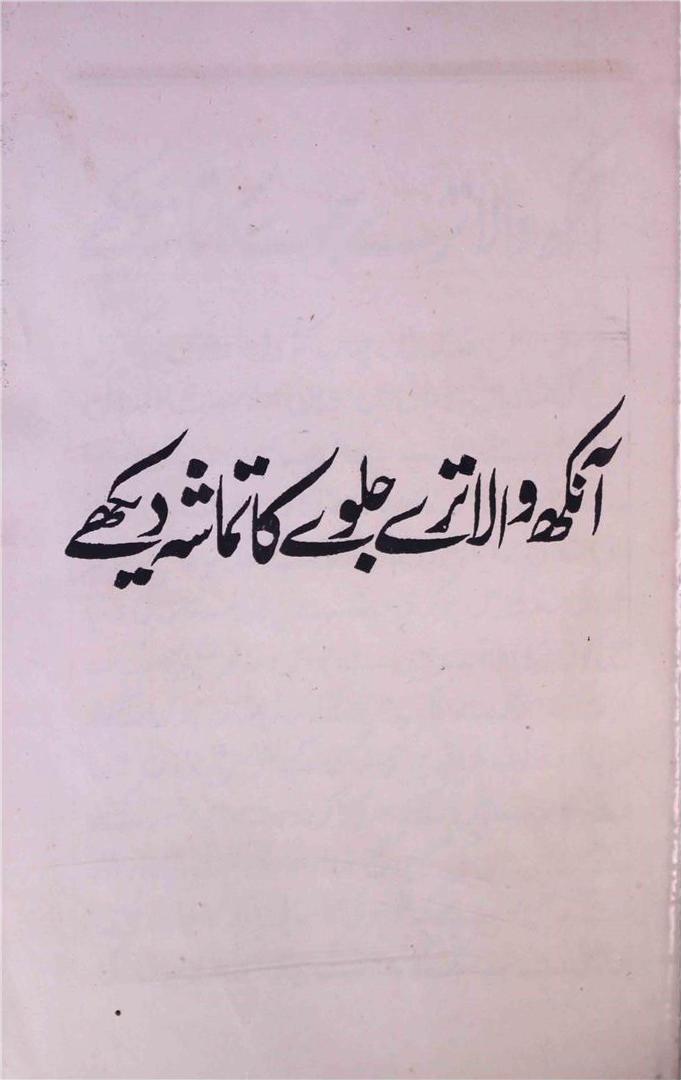 آنکھ والا ترے جلوے کا تماشہ دیکھے